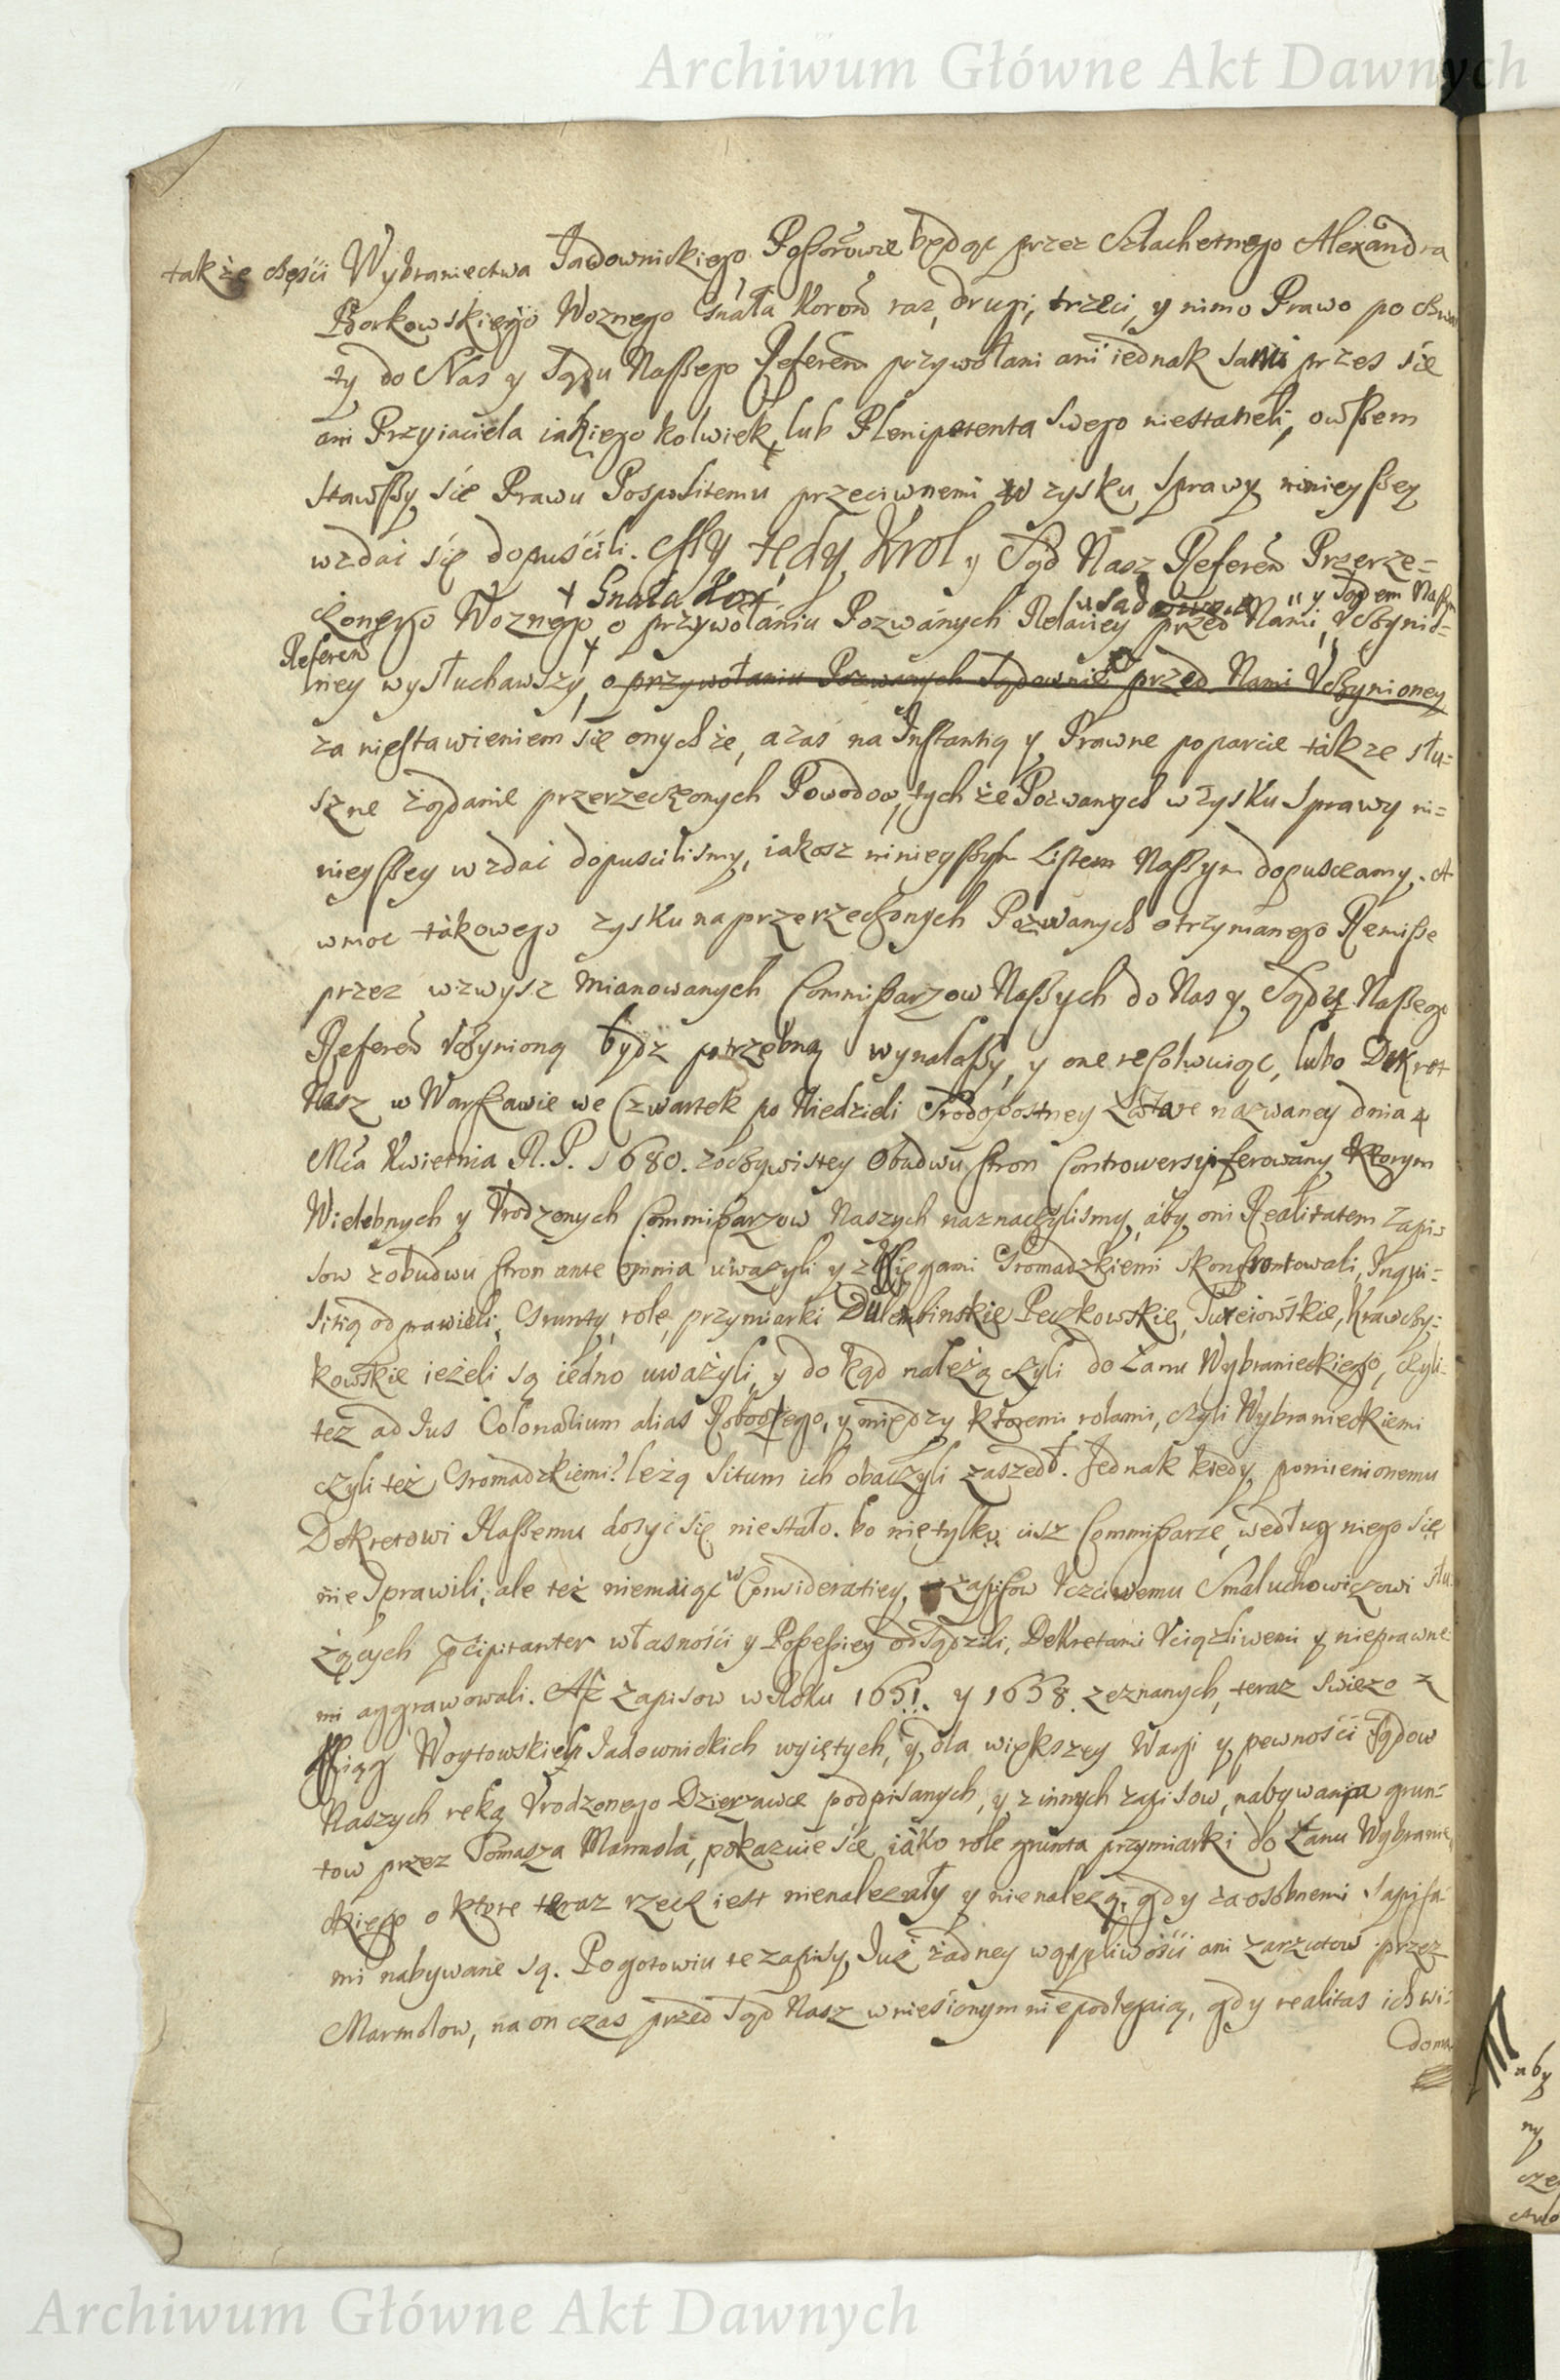 Archiwum Główne Akt Dawnych
także częsci Wybraniectwa Jadownickiego Possorowie będąc przez Szlachetnego Alexandra
Borkowskiego Woznego Gnała Koron raz, drugi, trzeci, y nimo Prawo po czwar
ty do Nas y Sądu Naszego Referen przywołani ani iednak sami przes się
ani Przyiaciela iakiego kolwiek, lub Plenipotenta Swego niestaneli, owszem
stawszy się Prawu Pospolitemu przeciwnemi w zysku Sprawy ninieyszey
wzdać się dopuścili. My tedy Krol y Sąd Nasz Referen Przerze=
+ Gnała Kor y Sądem Naszym
czonego Woznego o przywołaniu Pozwanych Relacyey przed Nami, Vczynio=
Referen
ney wysłuchawszy, o przywołaniu Pozwanych Sądownie przed Nami Vczynioney
za niestawieniem się onychże, a zas na Instantią y Prawne poparcie także słu=
szne żądanie przerzeczonych Powodow, tych że Pozwanych w zysku Sprawy ni=
nieyszey wzdać dopuscilismy, iakosz ninieyszym Listem Naszym dopusczamy. A
wmoc takowego zysku na przerzeczonych Pozwanych otrzymanego Remisse
przez wzwysz mianowanych Commissarzow Naszych do Nas y Sądu Naszego
Referen Vczynioną bydz potrzebną wynalaszy, y one resolwuiąc, lubo Dekret
Nasz w Warszawie we Czwartek po Niedzieli Srodopostney Lætare nazwaney dnia 4
Mca Kwietnia R. P. 1680. zoczywistey Obudwu stron Controwersyi ferowany Ktorym
Wielebnych y Vrodzonych Commissarzow Naszych naznaczylismy, aby oni Realitatem Zapi=
sow zobudwu stron ante omnia uwazyli y z Xięgami Gromadzkiemi skonfrontowali, Inqui=
sitią odprawieli, Grunty, role, przymiarki Dulembinskie Peczkowskie, Krawczy=
kowskie ieżeli są iedno uważyli, y do kąd należą czyli do Łanu Wybranieckiego, czyli=
też ad Jus Colonarium alias Roboczego, y między ktoremi rolami, czyli Wybranieckiemi
czyli też Gromadzkiemi? leżą situm ich obaczyli zaszedł. Jednak kiedy pomienionemu
Dekretowi Naszemu dosyć się niestało. bo nietylko cisz Commissarze, według niego się
nie Sprawili, ale też niemaiąc w Consideratiey, zapisow Vczciwemu Smaluchowiczowi słu
żących præcipitanter własności y Possessiey odsądzili, Dekretami Vciążliwemi y nieprawne
mi aggrawowali. Aże Zapisow w Roku 1651. y 1658. zeznanych, teraz swiezo z
Xiąg Woytowskich Jadownickich wyiętych, y dla większey Wagi y pewności Sądow
Naszych ręką Vrodzonego Dzierzawce podpisanych, y z innych zapisow, nabywania grun=
tow przez Tomasza Marmola, pokazuie się iako role grunta przymiarki do Łanu Wybranie
ckiego o ktore teraz rzecz iest nienalezały y nienalezą, gdy za osobnemi Zapisa
mi nabywane są. Pogotowiu te zapisy, Już żadney wątpliwości ani zarzutow przez
Marmolow, na on czas przed Sąd Nasz wniesionym niepodlegaią, gdy realitas ich wi=
doma
aby
ny
Archiwum Główne Akt Dawnych